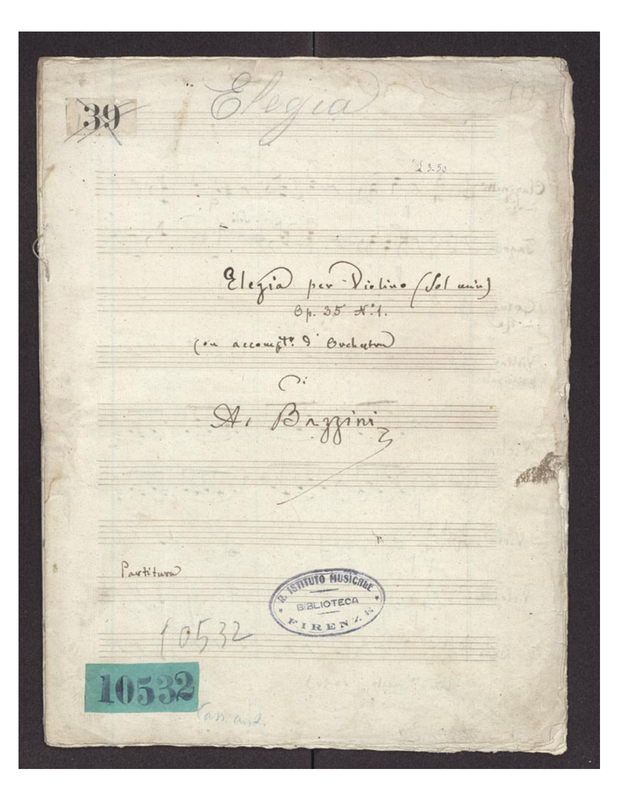 Elegia
39
£ 3.50
Elegia per Violino (Sol min)
Op. 35 N° 1.
Con accompto. d'Orchestra
di
A. Bazzini
Partitura
R. ISTITUTO MUSICALE
BIBLIOTECA
FIRENZE
10532
10532